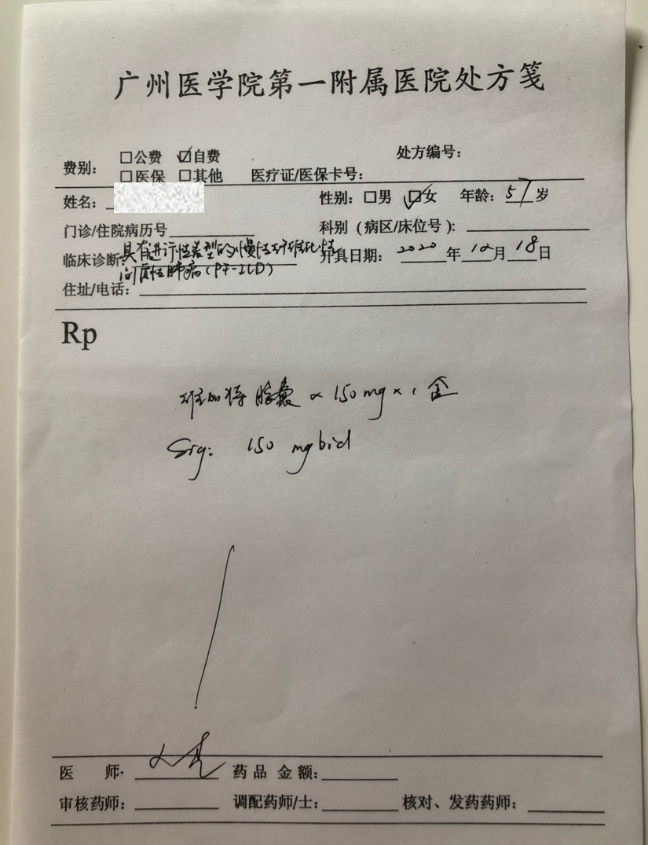 广州医学院第一附属医院处方笺
费别: □公费 ☑自费 处方编号:
□医保 □其他 医疗证/医保卡号:
姓名: 性别: □男 ☑女 年龄: 57 岁
门诊/住院病历号 科别 (病区/床位号):
临床诊断 具有进行性类型的慢性纤维化性 开具日期: 2020 年 12 月 18 日
间质性肺病 (PF-ILD)
住址/电话:
Rp
维加特胶囊 150mg × 1 盒
Sig: 150 mg bid
医 师: 药品金额:
审核药师: 调配药师/士: 核对、发药药师: